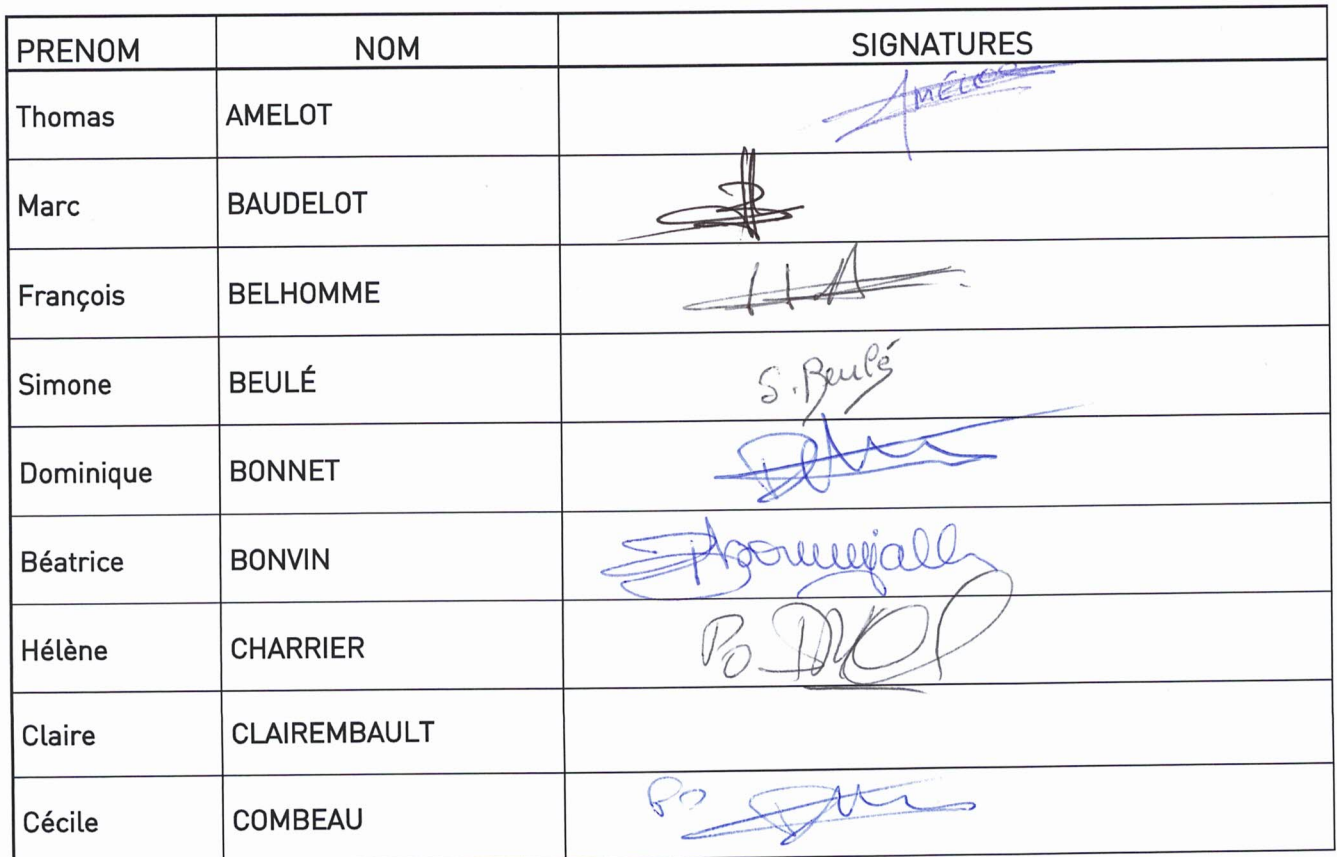 PRENOM NOM SIGNATURES
Thomas AMELOT AMELOT
Marc BAUDELOT
François BELHOMME
Simone BEULÉ S. Beulé
Dominique BONNET
Béatrice BONVIN
Hélène CHARRIER Po
Claire CLAIREMBAULT
Cécile COMBEAU Po